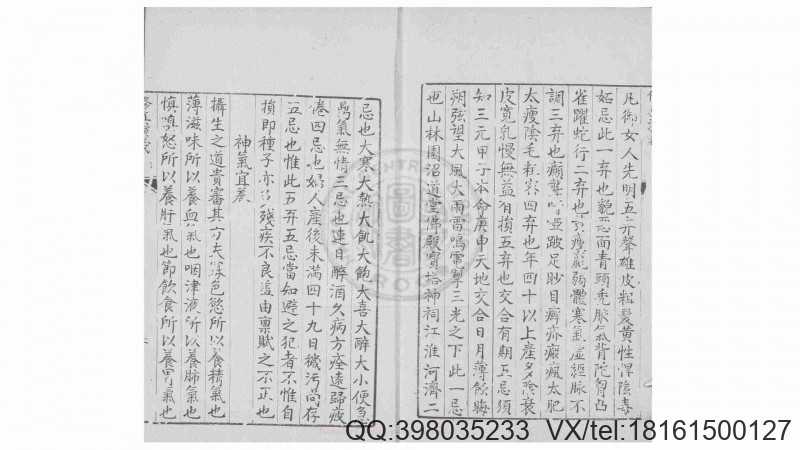 凡御女人先明五弃聲雄皮粗髮黃性悍陰毒
妬忌此一弃也貌惡面青頭禿腋氣背陀胷凸
雀躍蛇行二弃也瘦羸弱體寒氣虛經脉不
調三弃也癲聾跛足眇目癬疥瘢瘋太肥
太瘦陰毛粗密四弃也年四十以上產多陰衰
皮寬乳慢無益有損五弃也交合有期五忌須
知三元甲子本命庚申天地交合日月薄蝕晦
朔弦望大風大雨雷鳴電擊三光之下此一忌
也山林園沼道堂佛殿寶塔神祠江淮河濟二
忌也大寒大熱大飢大飽大喜大醉大小便急
氣無情三忌也連日醉酒久病方痊遠歸疲
倦四忌也婦人產後未滿四十九日穢污尚存
五忌也惟此五弃五忌當如避之犯者不惟自
損即種子亦殘疾不良由稟賦之不正也
神氣宜養
攝生之道貴審其方夫色慾所以養精氣也
薄滋味所以養血氣也咽津液所以養肺氣也
慎嗔怒所以養肝氣也節飲食所以養胃氣也
QQ:398035233 VX/tel:18161500127